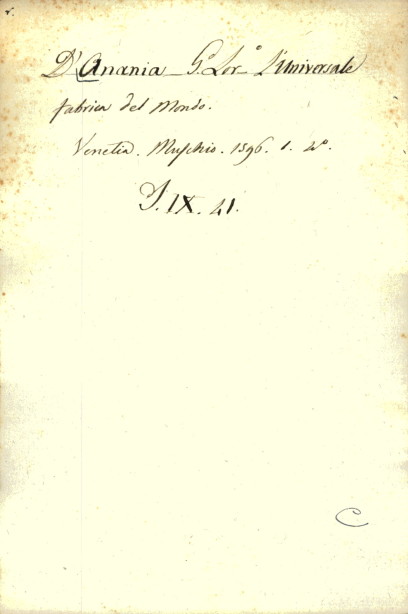 D'Anania G.º Lor.º L'Universale
fabrica del Mondo.
Venetia. Muschio. 1596. 1. 4º.
IX. 41.
C